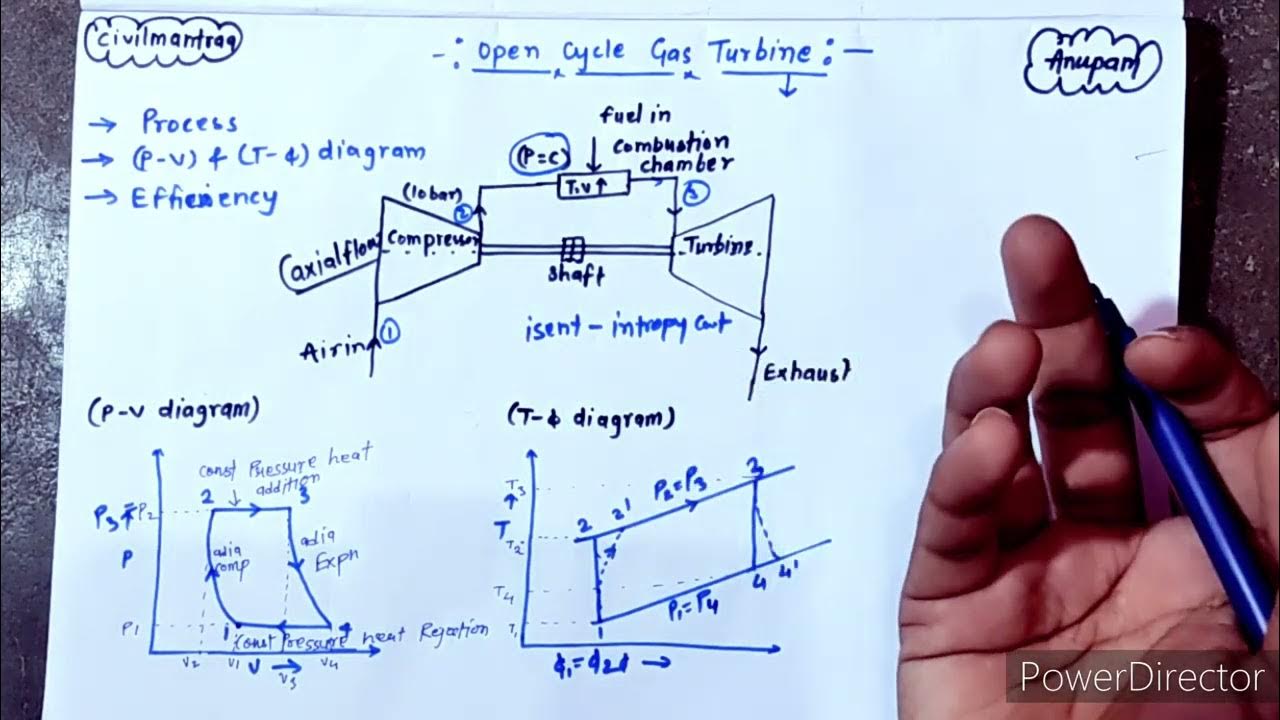 civilmantraa
-: Open Cycle Gas Turbine :-
Anupam
→ Process
→ (P-V) & (T-ϕ) diagram
→ Efficiency
fuel in
(P=C)
combustion
chamber
T,V↑
(10bar)
②
③
Compressor
Turbine
(axialflow
shaft
①
Airin
isent - intropy const
Exhaust
(P-V diagram)
const Pressure heat
addition
2
3
P3 = P2
P
adia
comp
adia
Expn
P1
1
4
Const Pressure heat Rejection
V2
V1
V →
V3
V4
(T-ϕ diagram)
T3
T
T2
T4
T1
2
2'
P2=P3
3
4
4'
P1=P4
1
ϕ1=ϕ2 ϕ →
PowerDirector